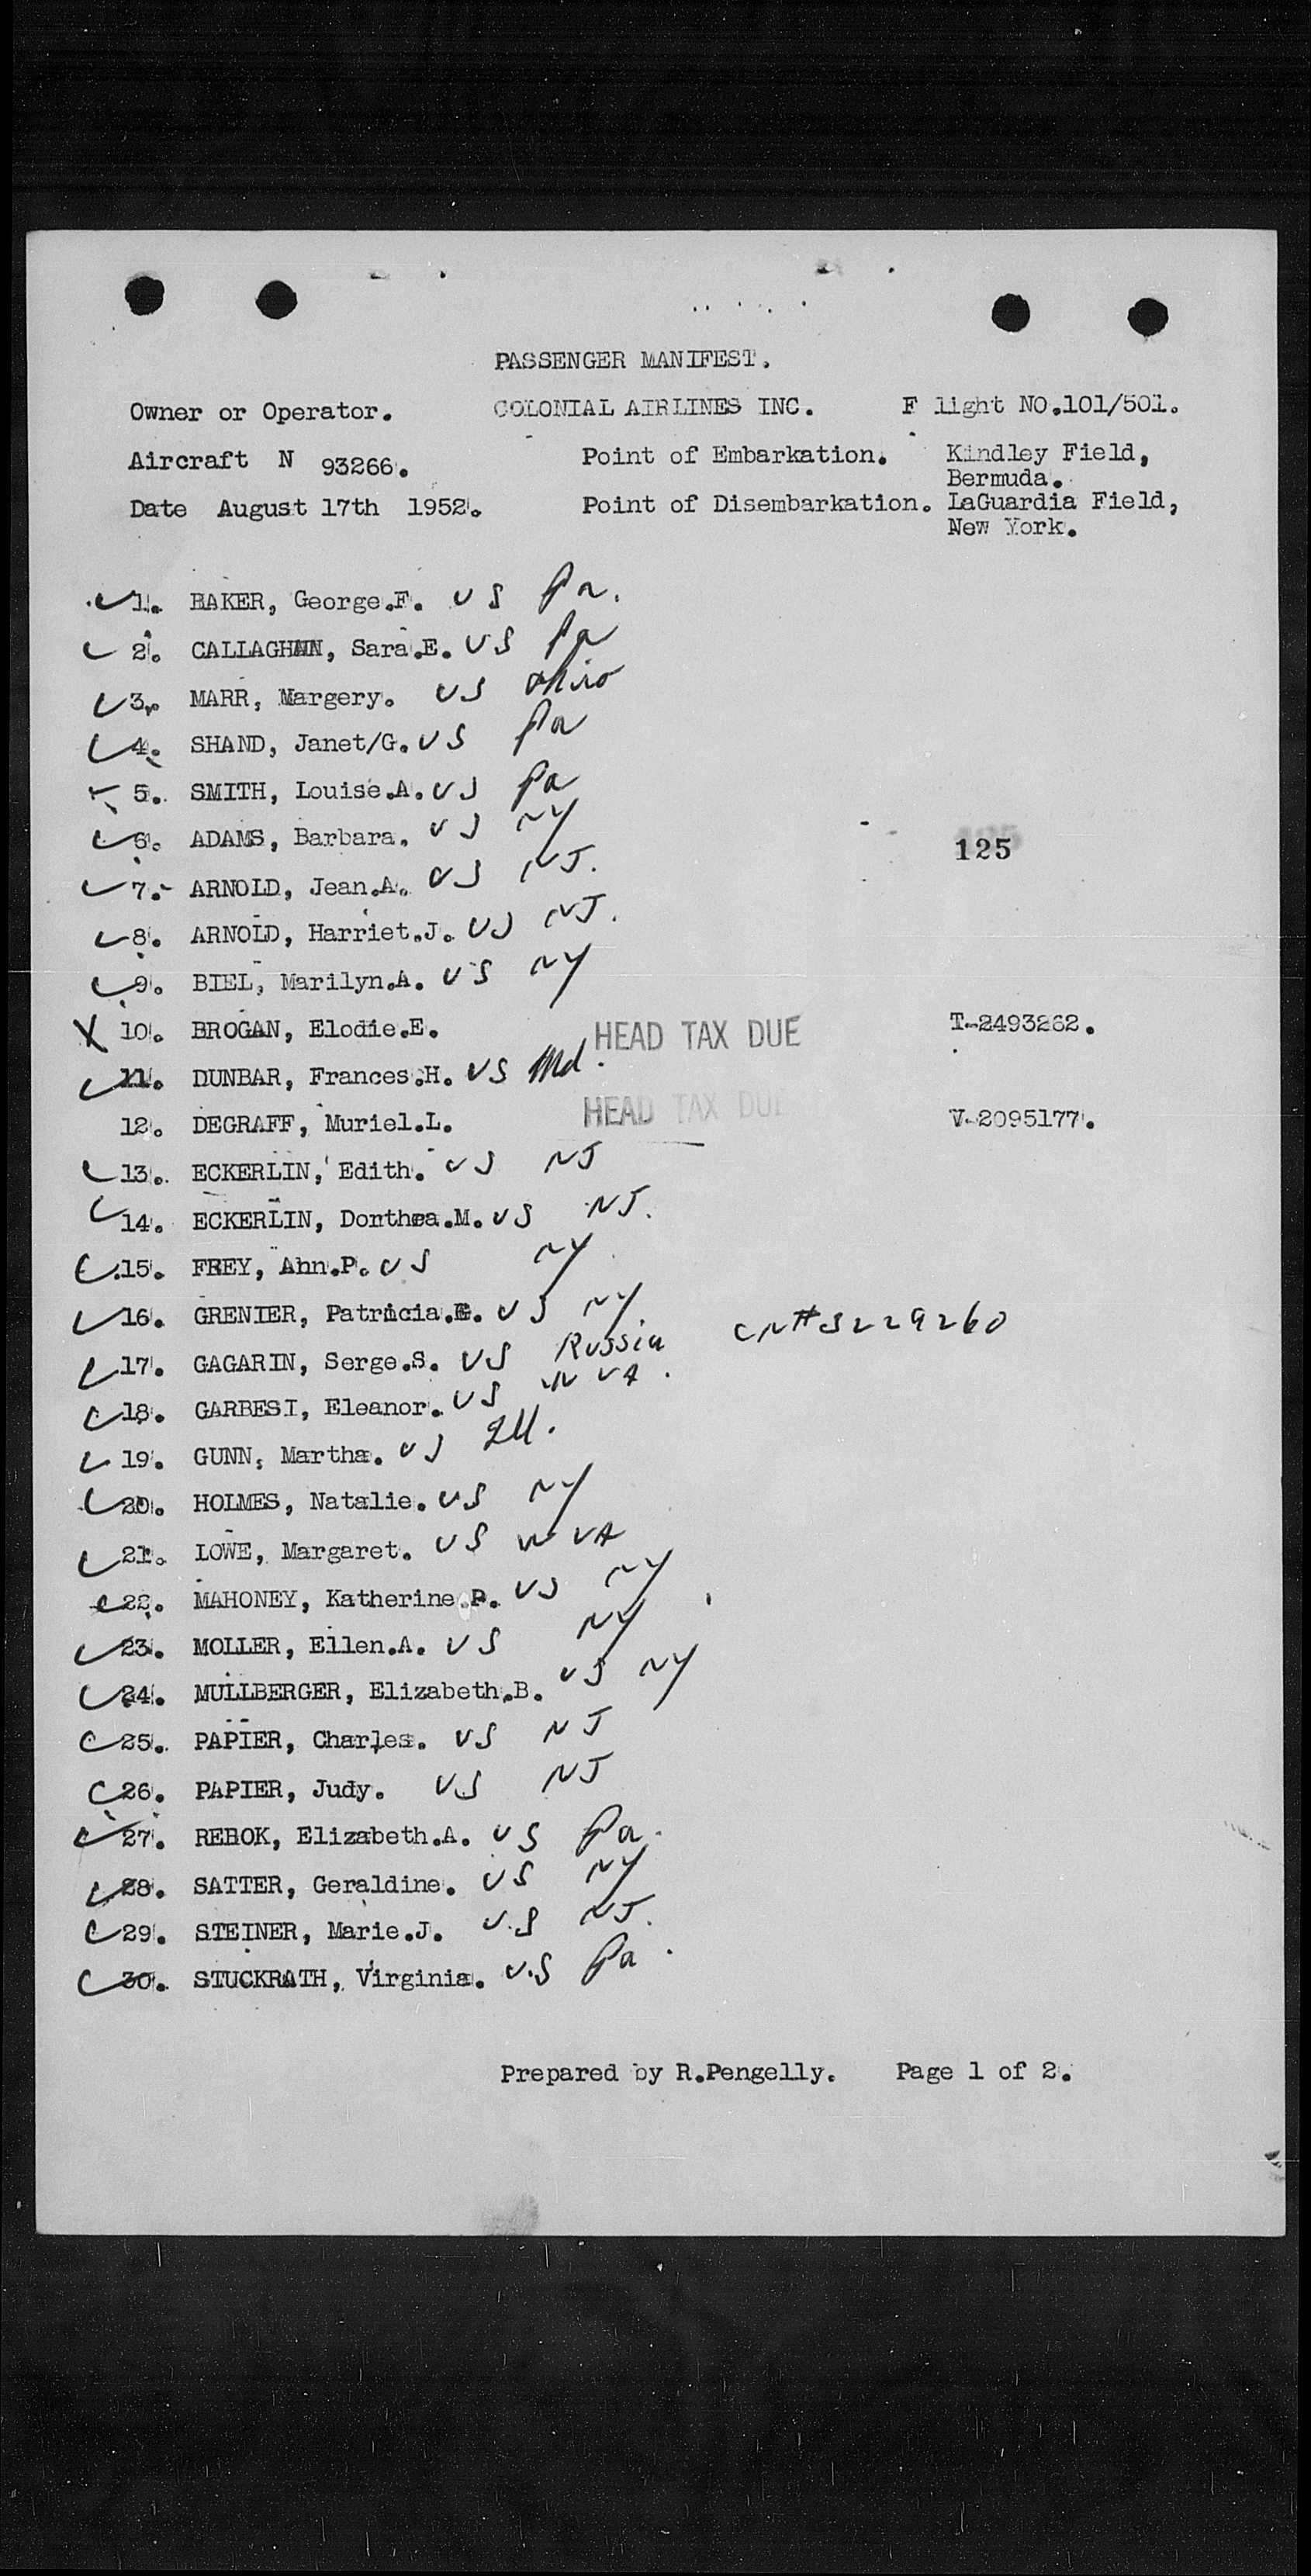 PASSENGER MANIFEST.
Owner or Operator. COLONIAL AIRLINES INC. F light NO.101/501.
Aircraft N 93266. Point of Embarkation. Kindley Field,
Bermuda.
Date August 17th 1952. Point of Disembarkation. LaGuardia Field,
New York.
1. BAKER, George.F. US Pa.
2. CALLAGHAN, Sara.E. US Pa
3. MARR, Margery. US Ohio
4. SHAND, Janet/G. US Pa
5. SMITH, Louise.A. US Pa
6. ADAMS, Barbara. US NY
125
7. ARNOLD, Jean.A. US NJ.
8. ARNOLD, Harriet.J. US NJ.
9. BIEL, Marilyn.A. US NY
X 10. BROGAN, Elodie.E. HEAD TAX DUE T-2493262.
11. DUNBAR, Frances.H. US Md.
12. DEGRAFF, Muriel.L. HEAD TAX DUE V-2095177.
13. ECKERLIN, Edith. US NJ
14. ECKERLIN, Dorthea.M. US NJ.
15. FREY, Ahn.P. US NY
16. GRENIER, Patricia.E. US NY
17. GAGARIN, Serge.S. US Russia CN#3229260
18. GARBESI, Eleanor. US W VA.
19. GUNN, Martha. US Ill.
20. HOLMES, Natalie. US NY
21. LOWE, Margaret. US W VA
22. MAHONEY, Katherine.P. US NY
23. MOLLER, Ellen.A. US NY
24. MULLBERGER, Elizabeth.B. US NY
25. PAPIER, Charles. US NJ
26. PAPIER, Judy. US NJ
27. REBOK, Elizabeth.A. US Pa.
28. SATTER, Geraldine. US NY
29. STEINER, Marie.J. U.S NJ.
30. STUCKRATH, Virginia. U.S Pa.
Prepared by R.Pengelly. Page 1 of 2.